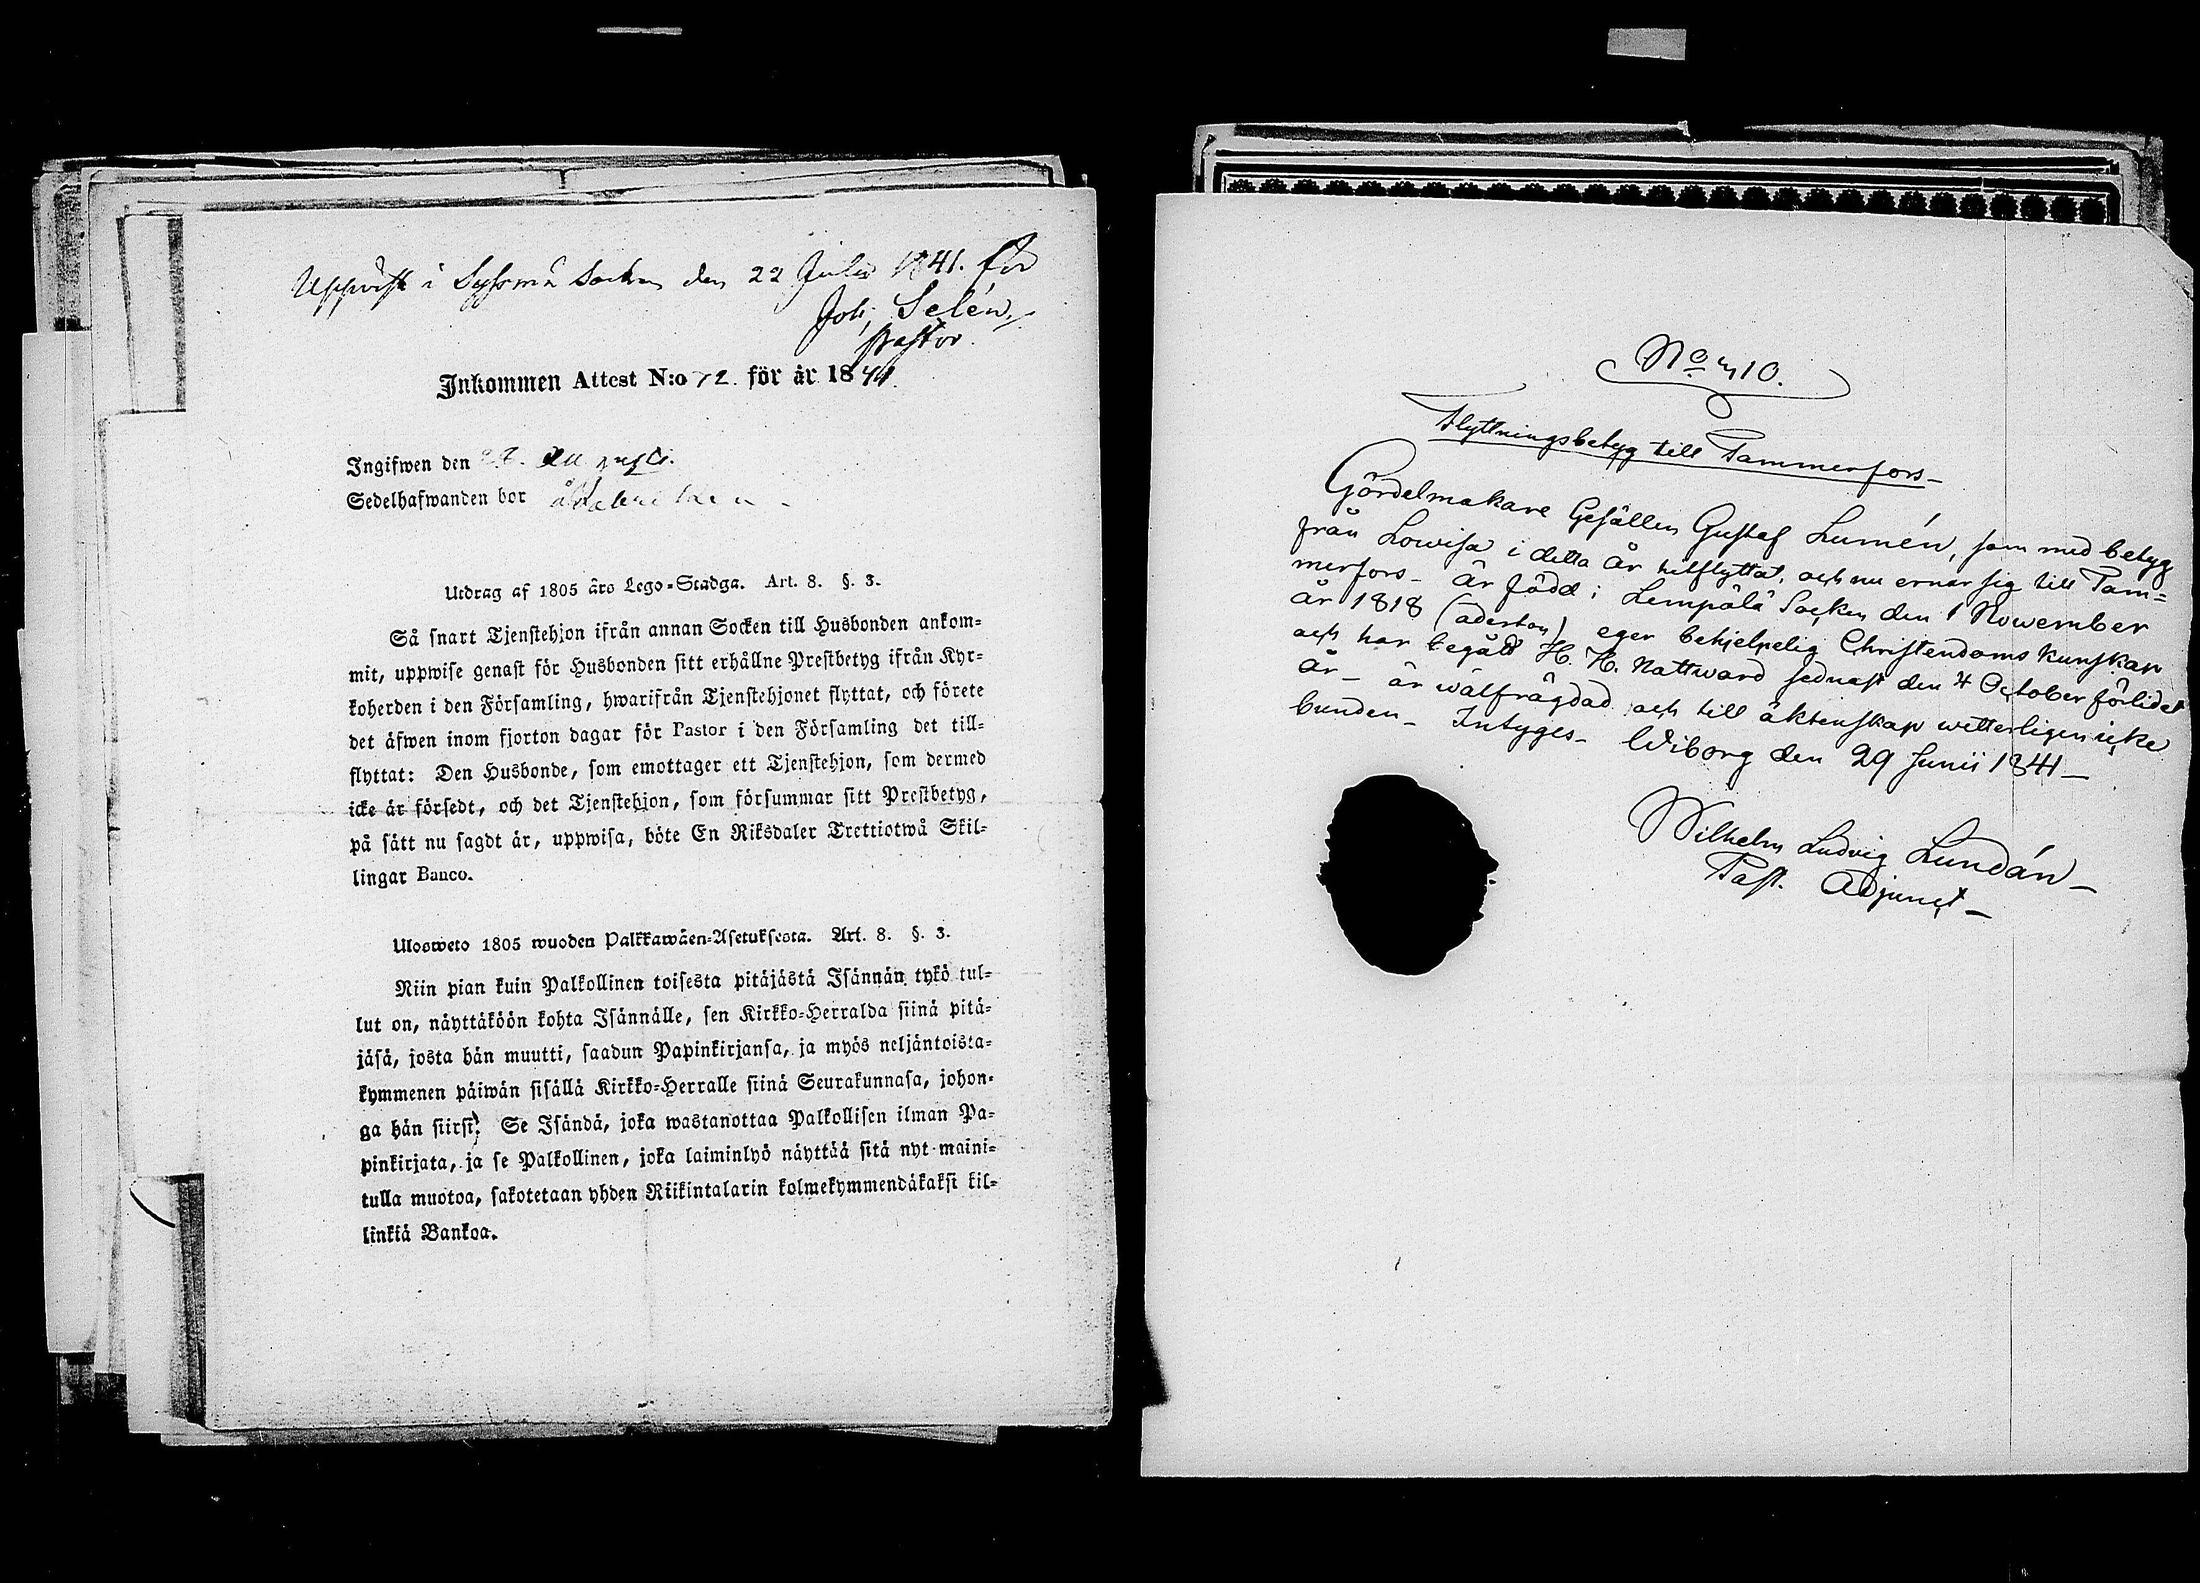 Uppvist i Syssmä Socken den 22 Julii 1841. för
Joh. Selén,
Pastor.
Inkommen Attest N:o 72. för år 1841.
Ingifwen den Augusti.
Sedelhafwanden bor
Utdrag af 1805 års Lego-Stadga. Art. 8. §. 3.
Så snart Tjenstehjon ifrån annan Socken till Husbonden ankom-
mit, uppwise genast för Husbonden sitt erhållne Prestbetyg ifrån Kyr-
koherden i den Församling, hwarifrån Tjenstehjonet flyttat, och förete
det äfwen inom fjorton dagar för Pastor i den Församling det till-
flyttat: Den Husbonde, som emottager ett Tjenstehjon, som dermed
icke är försedt, och det Tjenstehjon, som försummar sitt Prestbetyg,
på sätt nu sagdt är, uppwisa, böte En Riksdaler Trettiotwå Skil-
lingar Banco.
Ulosweto 1805 wuoden Palkkawäen-Asetuksesta. Art. 8. §. 3.
Niin pian kuin Palkollinen toisesta pitäjästä Isännän tykö tul-
lut on, näyttäköön kohta Isännälle, sen Kirkko-Herralda siinä pitä-
jäsä, josta hän muutti, saadun Papinkirjansa, ja myös neljäntoista-
kymmenen päiwän sisällä Kirkko-Herralle siinä Seurakunnasa, johon-
ga hän siirsi. Se Isändä, joka wastanottaa Palkollisen ilman Pa-
pinkirjata, ja se Palkollinen, joka laiminlyö näyttää sitä nyt maini-
tulla muotoa, sakotetaan yhden Riikintalarin kolmekymmendäkaksi kil-
linkiä Bankoa.
No 410.
Flyttningsbetyg till Tammerfors-
Gördelmakare Gesällen Gustaf Lumén, som med betyg
från Lowisa i detta År hitflyttat, och nu ernar sig till Tam=
merfors- är född i Lempälä Socken den 1 November
år 1818 (aderton) eger behjelpelig Christendoms kunskap
och har begådt H. H. Nattward sednast den 4 October förlidet
år - är wälfrägdad och till äktenskap wetterligen icke
bunden - Intyges- Wiborg den 29 Junii 1841-
Wilhelm Ludvig Lundán-
Past. Adjunct-